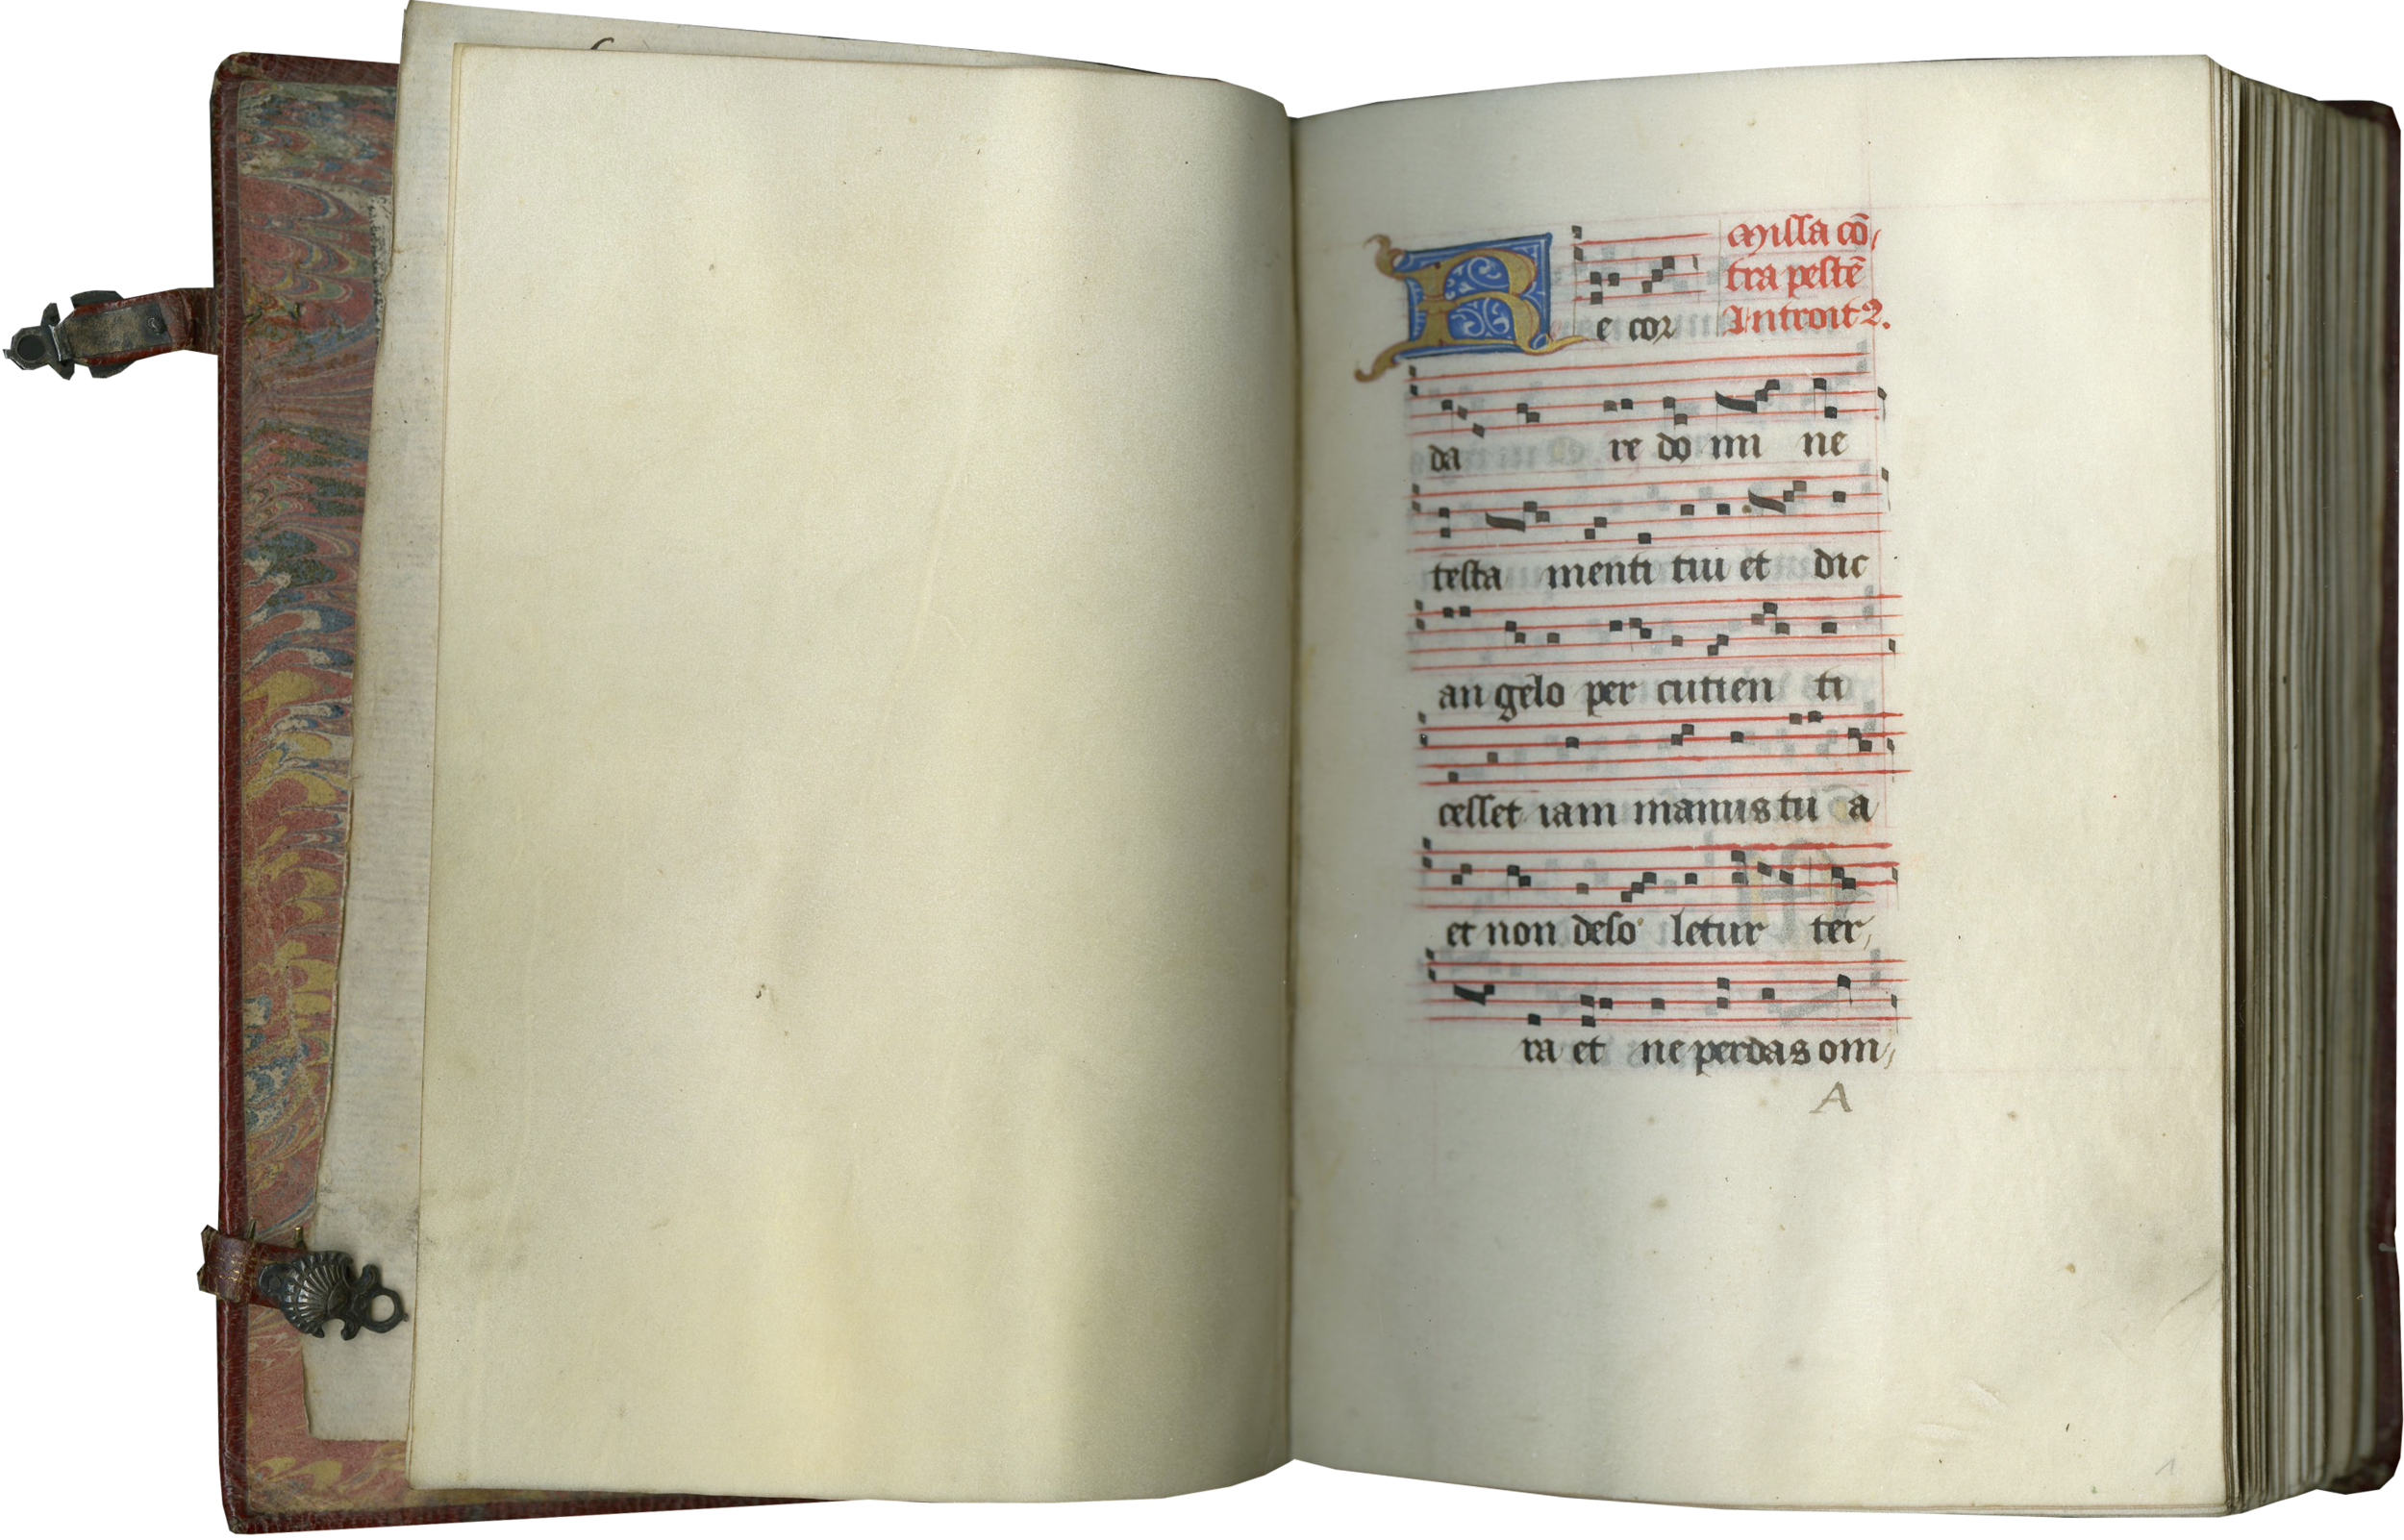 Missa cō,
tra pestē
Introit2.
Recor
da re domi ne
testa menti tui et dic
an gelo per cutien ti
cesset iam manus tu a
et non deso letur ter,
ra et ne perdas om,
A
1